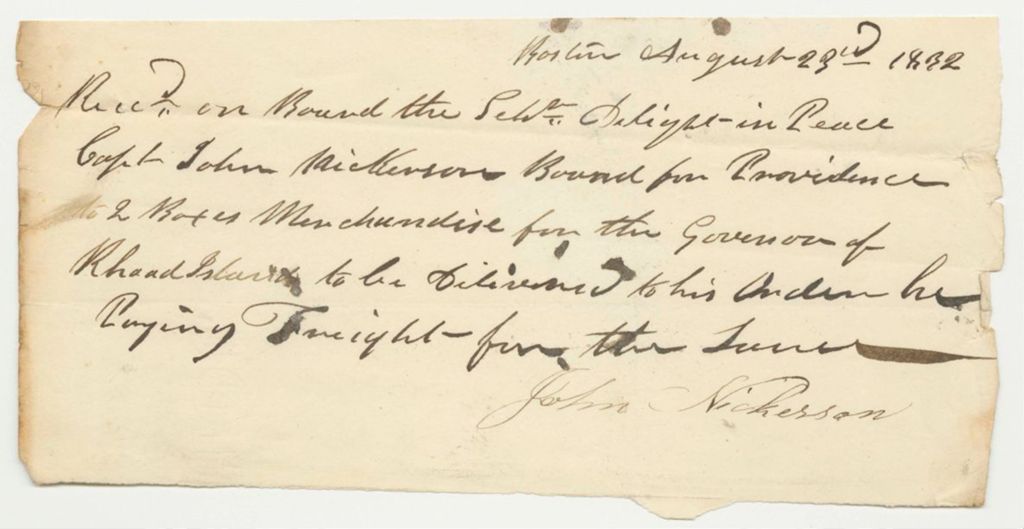 Boston August 23rd 1832
Recd on Bound the Schr Delight in Peace
Capt John Nickerson Bound for Providence
to 2 Boxes Merchandise for the Govenor of
Rhoad Island to be Delivered to his Order he
Paying Freight for the Same
John Nickerson